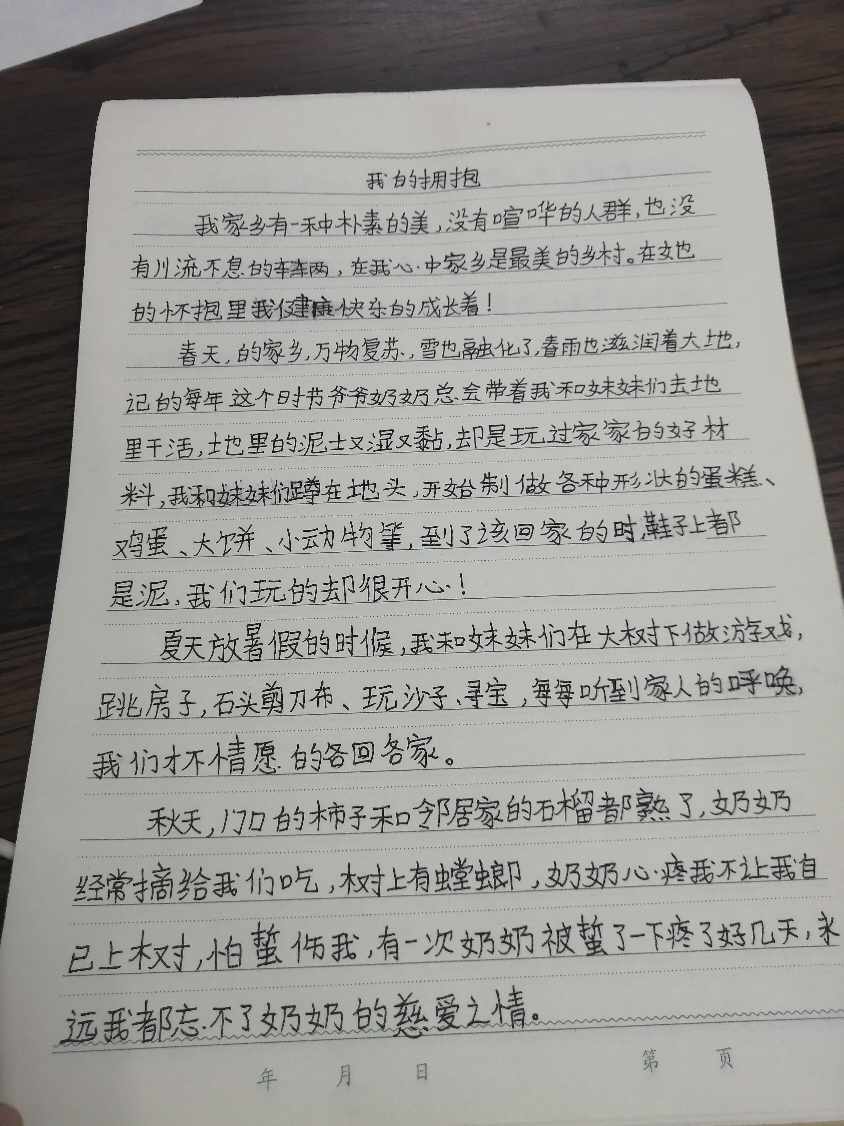 我的拥抱
我家乡有一种朴素的美,没有喧哗的人群,也没
有川流不息的车辆,在我心中家乡是最美的乡村。在她
的怀抱里我们健康快乐的成长着!
春天,的家乡,万物复苏,雪也融化了,春雨也滋润着大地,
记的每年这个时节爷爷奶奶总会带着我和妹妹们去地
里干活,地里的泥土又湿又黏,却是玩过家家的好材
料,我和妹妹们蹲在地头,开始制做各种形状的蛋糕、
鸡蛋、大饼、小动物等,到了该回家的时,鞋子上都
是泥,我们玩的却很开心!
夏天放暑假的时候,我和妹妹们在大树下做游戏,
跳房子,石头剪刀布、玩沙子、寻宝,每每听到家人的呼唤,
我们才不情愿的各回各家。
秋天,门口的柿子和邻居家的石榴都熟了,奶奶
经常摘给我们吃,树上有螳螂,奶奶心疼我不让我自
已上树,怕蜇伤我,有一次奶奶被蜇了一下疼了好几天,永
远我都忘不了奶奶的慈爱之情。
年 月 日 第 页